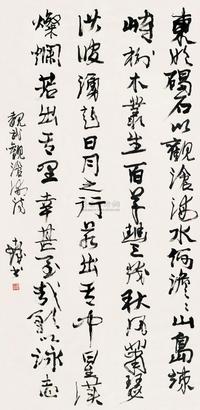 東臨碣石以觀滄海水何澹〻山島竦
峙樹木叢生百草豐茂秋風蕭瑟
洪波涌起日月之行若出其中星漢
燦爛若出其里幸甚至哉歌以詠志
魏武觀滄海詩
书